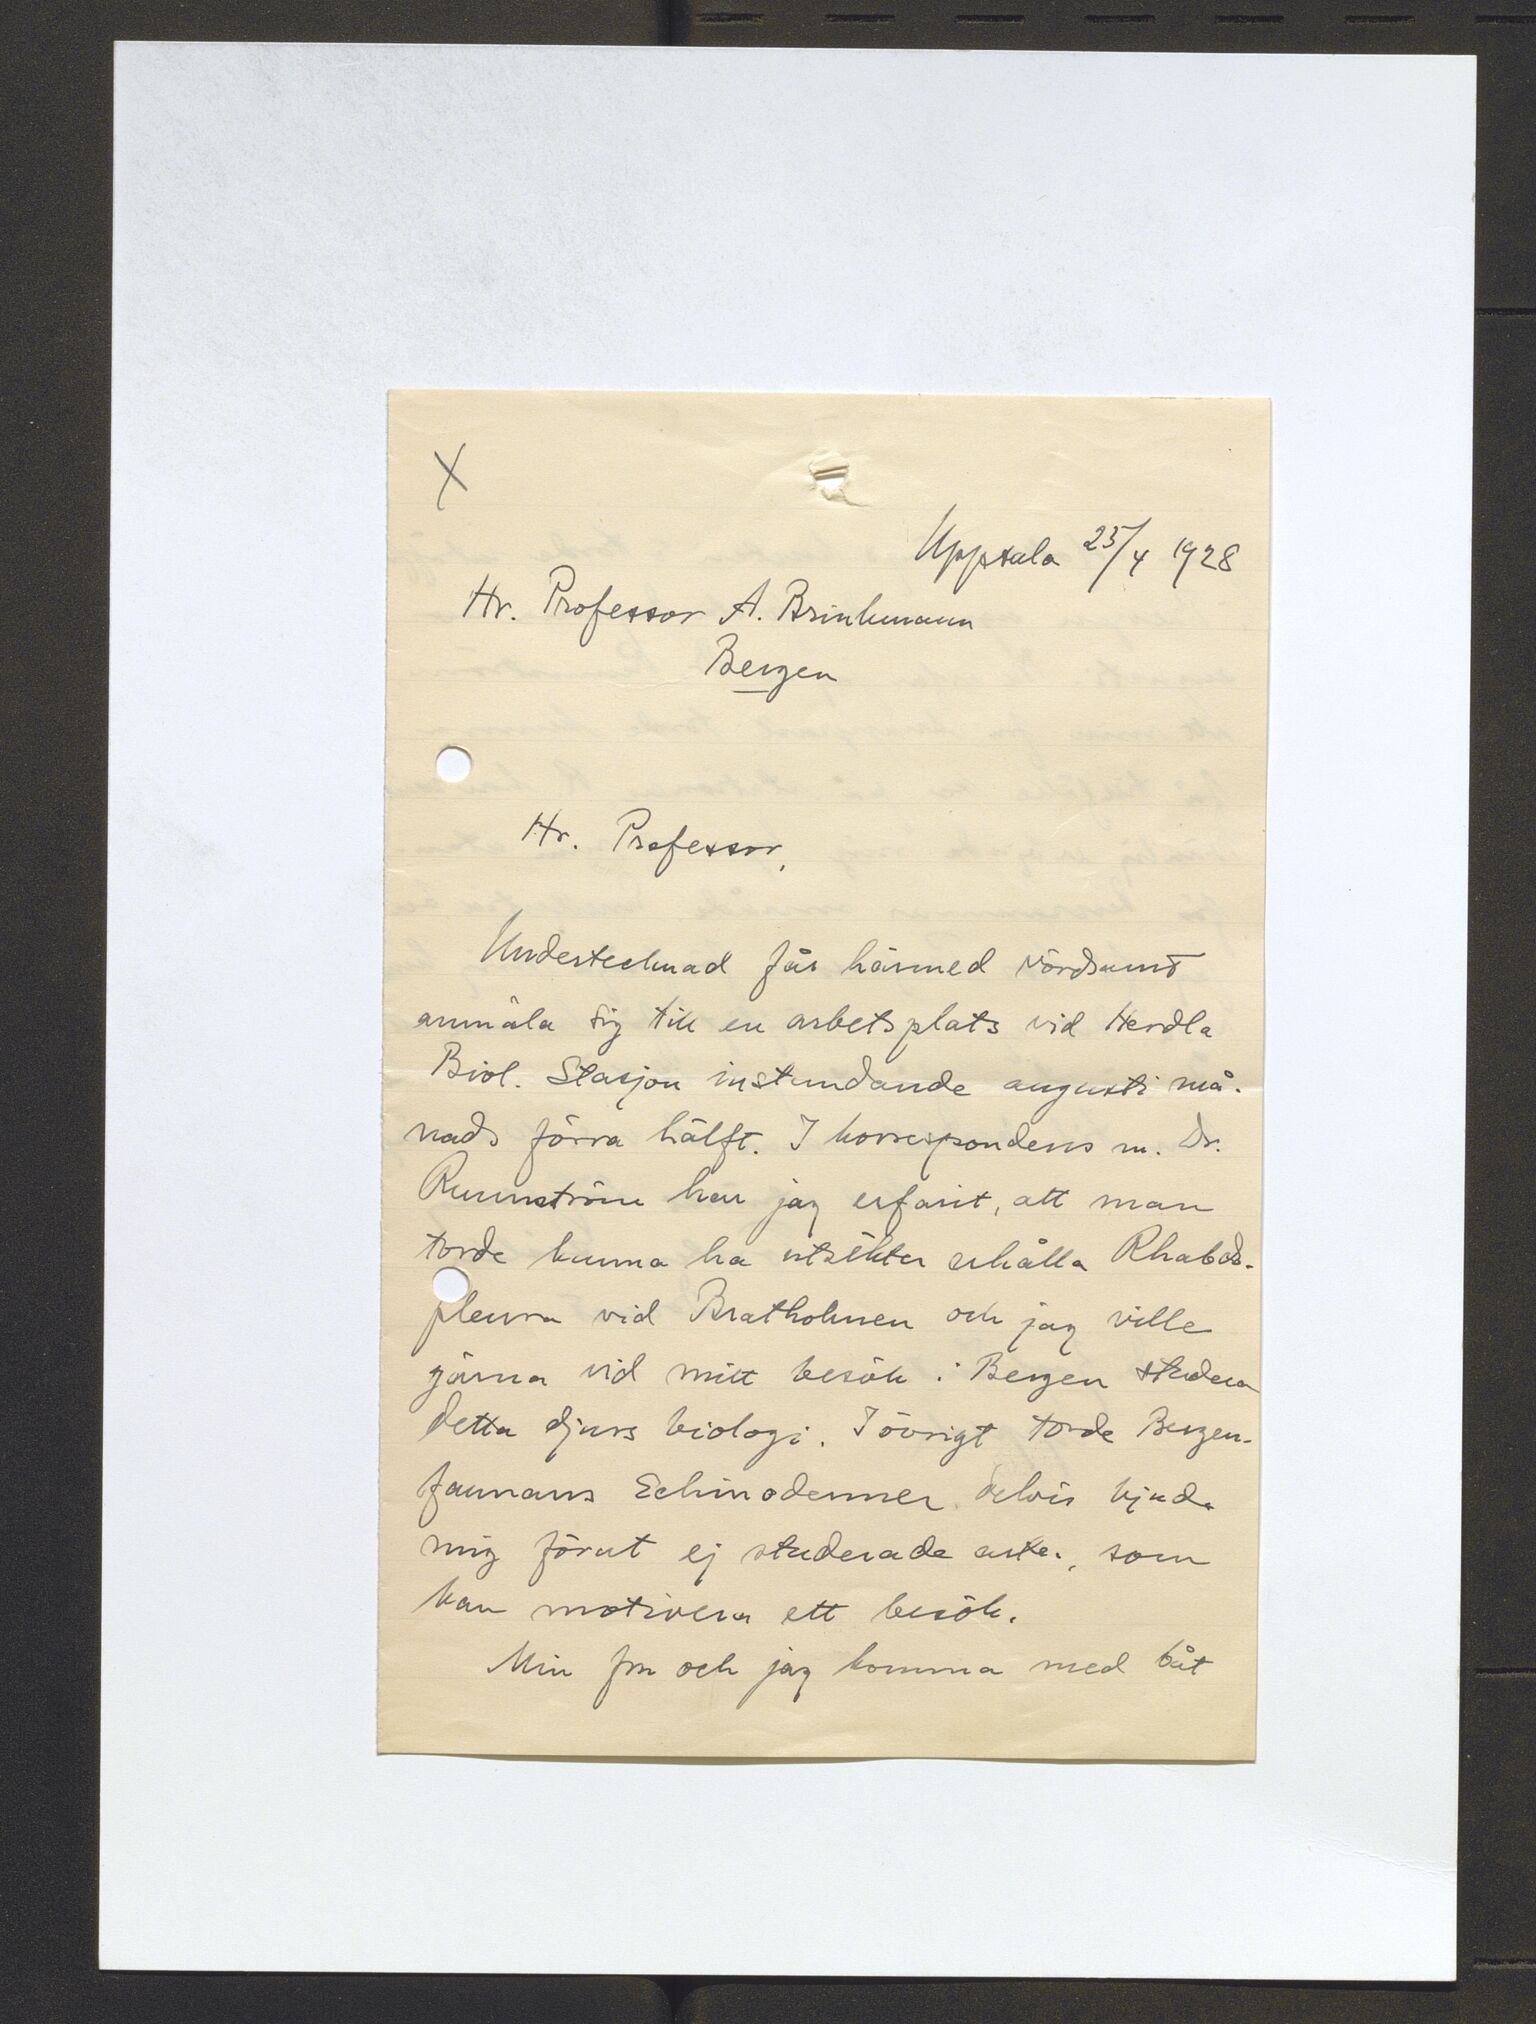 X
Uppsala 25/4 1928
Hr. Professor A. Brinkmann
Bergen
Hr. Professor,
Undertecknad får härmed vördsamt
anmäla sig till en arbetsplats vid Herdla
Biol. Stasjon instundande augusti må-
nads förra hälft. I korrespondens m. Dr.
Runnström har jag erfarit, att man
torde kunna ha utsikter erhålla Rhabdo-
pleura vid Bratholmen och jag ville
gärna vid mitt besök i Bergen studera
detta djurs biologi. I övrigt torde Bergen-
faunans Echinodermer delvis bjuda
mig förut ej studerade arter, som
kan motivera ett besök.
Min fru och jag komma med båt